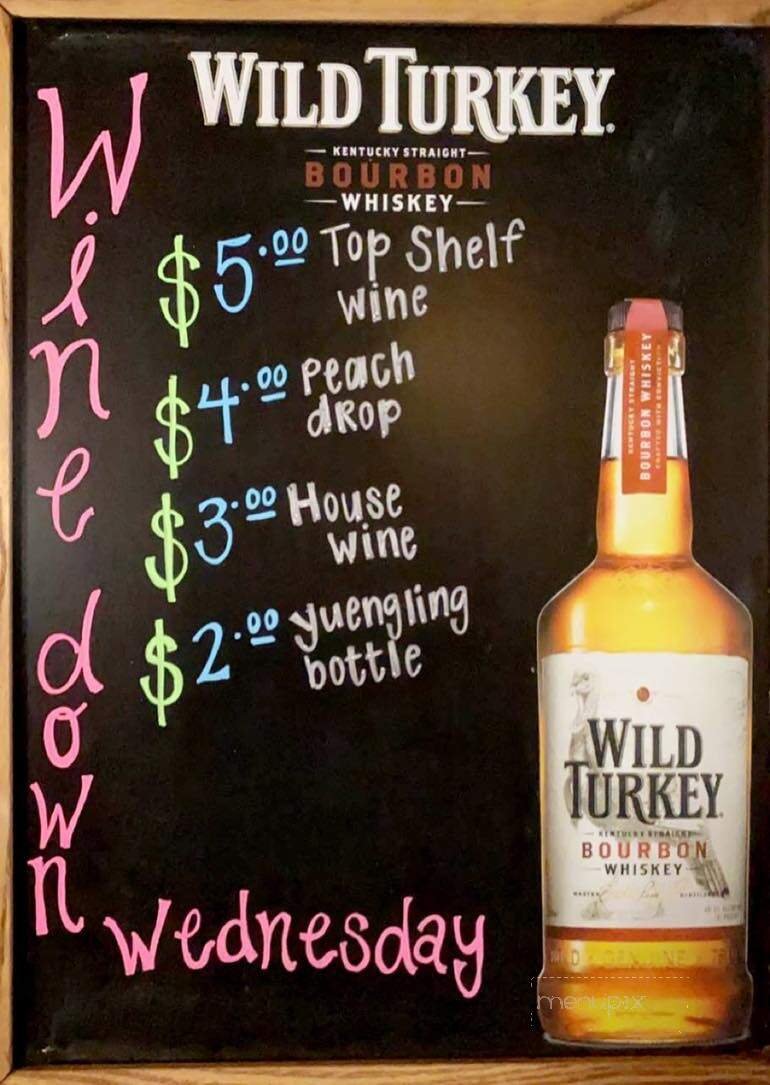 WILD TURKEY
KENTUCKY STRAIGHT
BOURBON
WHISKEY
Wine down
Wednesday
$5.00 Top Shelf
wine
$4.00 Peach
dRop
$3.00 House
wine
$2.00 yuengling
bottle
KENTUCKY STRAIGHT
BOURBON WHISKEY
CRAFTED WITH CONVICTION
WILD
TURKEY
KENTUCKY STRAIGHT
BOURBON
WHISKEY
MASTER
menupix